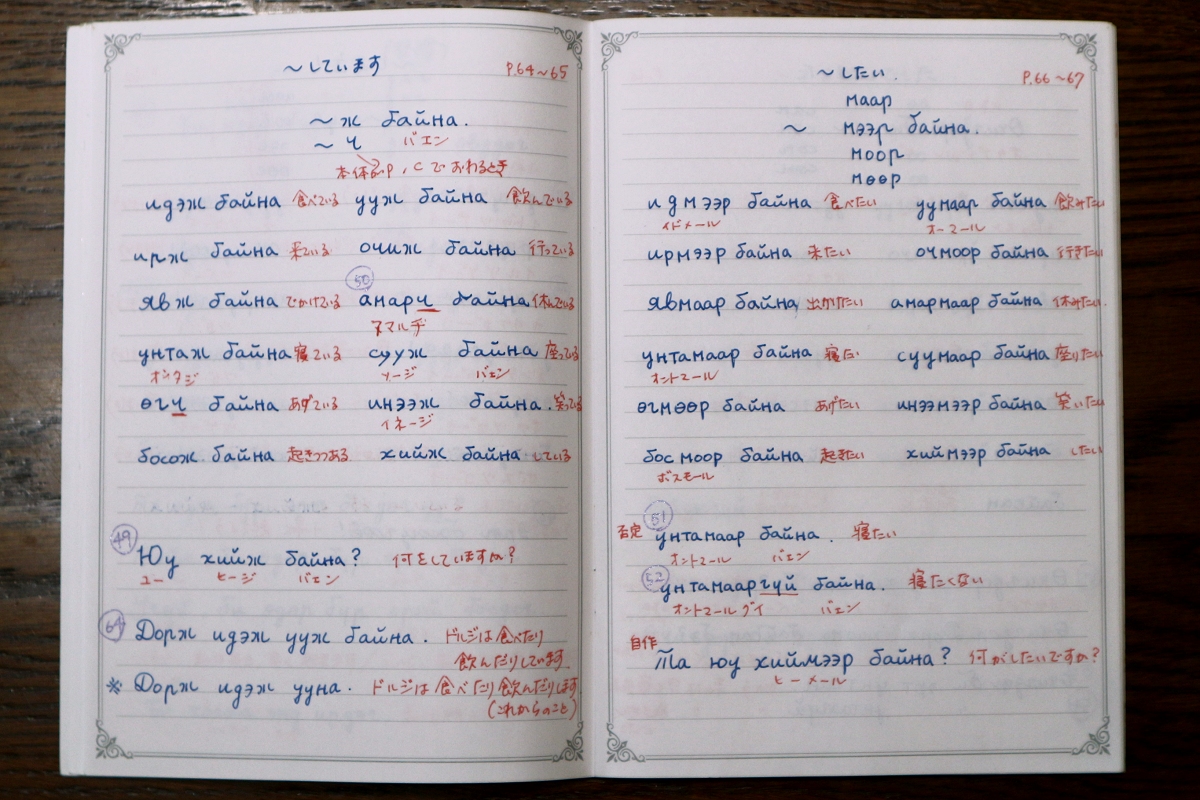 ～しています P.64～65
～ж байна.
～ч バエン
本体がр, сでおわるとき
идэж байна 食べている ууж байна 飲んでいる
ирж байна 来ている очиж байна 行っている
50
явж байна でかけている амарч байна 休んでいる
アマルチ
унтаж байна 寝ている сууж байна 座っている
オンタジ ソージ バエン
өгч байна あげている инээж байна. 笑っている
イネージ
босож байна 起きつつある хийж байна している
49
Юу хийж байна? 何をしていますか?
ユー ヒージ バエン
64 Дорж идэж ууж байна. ドルジは食べたり
飲んだりしています
※ Дорж идэж ууна. ドルジは食べたり飲んだりします
(これからのこと)
～したい. P.66～67
маар
～ мээр байна.
моор
мөөр
идмээр байна 食べたい уумаар байна 飲みたい
イドメール オーマール
ирмээр байна 来たい очмоор байна 行きたい
явмаар байна 出かけたい амармаар байна 休みたい.
унтамаар байна 寝たい суумаар байна 座りたい
オントマール
өгмөөр байна あげたい инээмээр байна 笑いたい
босмоор байна 起きたい хиймээр байна したい
ボスモール
51
否定 унтамаар байна. 寝たい
オントマール バエン
52 унтамааргүй байна. 寝たくない
オントマールグイ バエン
自作
Та юу хиймээр байна? 何がしたいですか?
ヒーメール